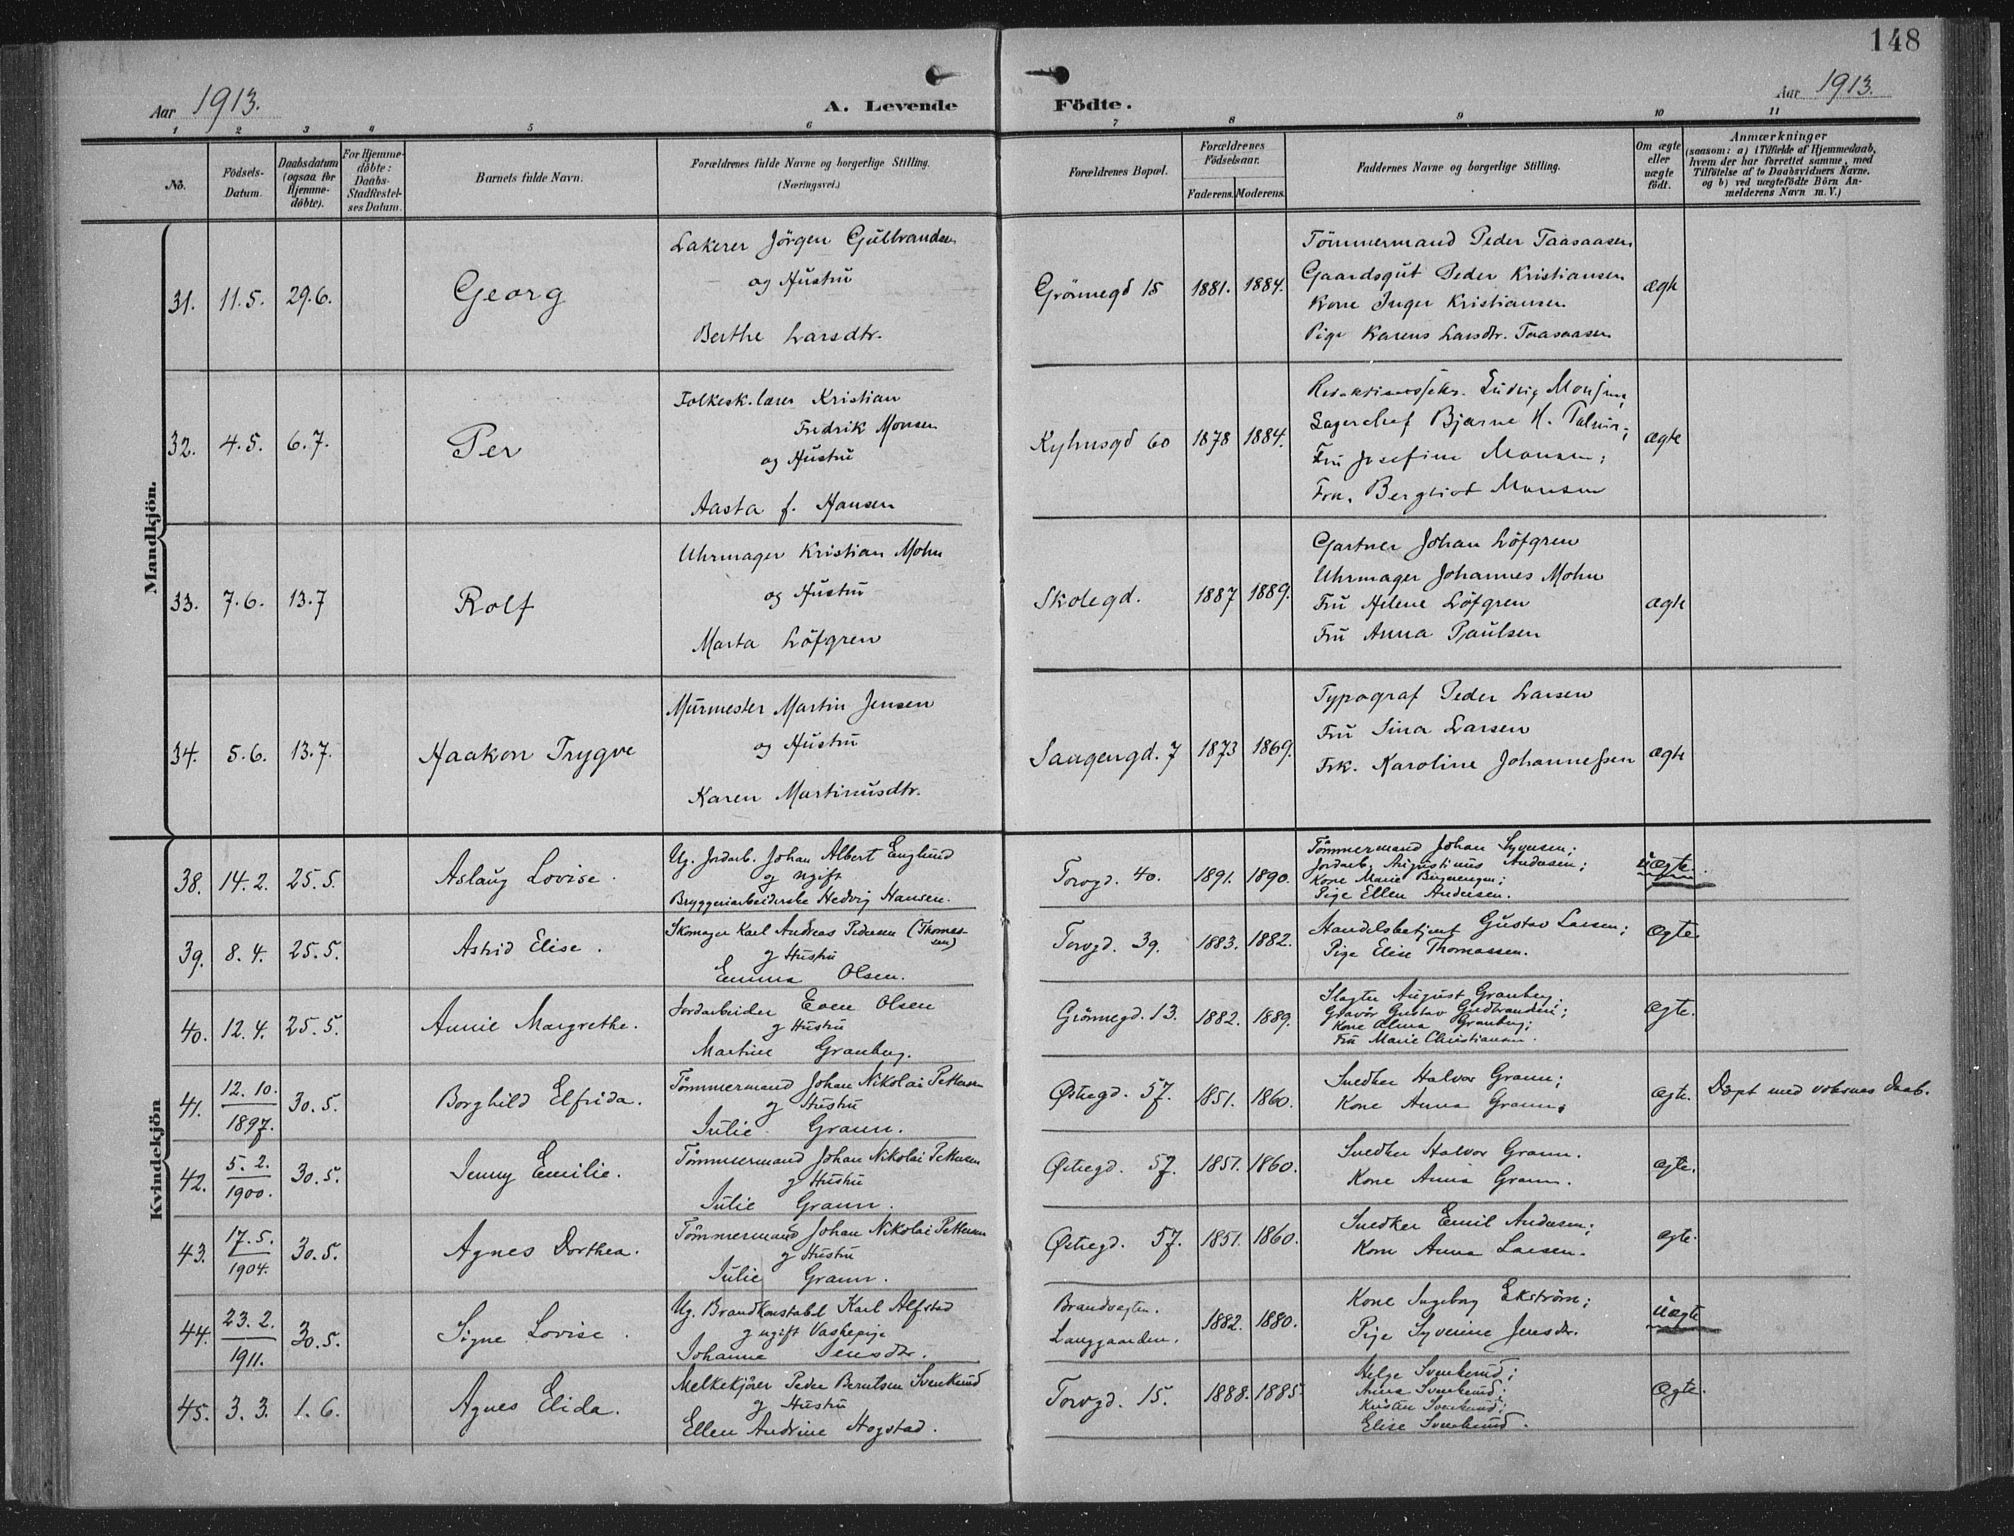 148
Aar 1913.
A. Levende Födte.
Aar 1913.
1 2 3 4 5 6 7 8 9 10 11
No.
Födsels-Datum.
Daabsdatum (ogsaa for Hjemme-döbte).
For Hjemme-döbte: Daabs-Stadfæstel-ses Datum.
Barnets fulde Navn.
Forældrenes fulde Navne og borgerlige Stilling.
(Næringsvei.)
Forældrenes Bopæl.
Forældrenes Födselsaar.
Faderens. Moderens.
Faddernes Navne og borgerlige Stilling.
Om ægte eller uægte födt.
Anmærkninger
(saasom: a) i Tilfælde af Hjemmedaab, hvem der har forrettet samme, med Tilföielse af to Daabsvidners Navne. og b) ved uægtefödte Börn An-melderens Navn m. V.)
Mandkjön.
31. 11.5. 29.6. Georg
Lakerer Jörgen Gulbrandsen
og Hustru
Berthe Larsdtr.
Grönnegd 15 1881. 1884.
Tömmermand Peder Taasaasen
Gaardsgut Peder Kristiansen
Kone Inger Kristiansen
Pige Karens Larsdtr. Taasaasen
ægte
32. 4.5. 6.7. Per
Folkesk.lærer Kristian
Fredrik Monsen
og Hustru
Aasta f. Hansen
Kyhnsgd 60 1878 1884.
Redaktionssekr. Ludvig Monsen,
Lagerchef Bjarne H. ;
Fru Josefine Monsen;
Frk. Bergliot Monsen
ægte
33. 7.6. 13.7 Rolf
Uhrmager Kristian Mohn
og Hustru
Marta Löfgren
Skolegd. 1887 1889.
Gartner Johan Löfgren
Uhrmager Johannes Mohn
Fru Helene Löfgren
Fru Anna Paulsen
ægte
34. 5.6. 13.7. Haakon Trygve
Murmester Martin Jensen
og Hustru
Karen Martinusdtr.
Vangengd. 7 1873 1869.
Typograf Peder Larsen
Fru Sina Larsen
Frk. Karoline Johannessen
ægte
Kvindekjön
38. 14.2. 25.5. Aslaug Lovise.
Ug. Jordarb. Johan Albert Englund
og ugift
Bryggeriarbeiderske Hedvig Hansen.
Torvgd. 40. 1891. 1890.
Tömmermand Johan Syversen;
Jordarb. Augustinus Andersen;
Kone Marie ;
Pige Ellen Andersen.
uægte.
39. 8.4. 25.5. Astrid Elise.
Skomager Karl Andreas Pedersen (Thomas-
sen)
og Hustru
Emma Olsen.
Torvgd. 39. 1883. 1882.
Handelsbetjent Gustav Larsen;
Pige Elise Thomassen.
ægte
40. 12.4. 25.5. Annie Margrethe.
Jordarbeider Even Olsen
og Hustru
Martine Granberg.
Grönnegd. 13. 1882. 1889.
Slagter August Granberg;
Gravör Gustav Gudbrandsen;
Kone Alma Granberg;
Fru Marie Christiansen.
ægte.
41. 12.10. 1897. 30.5. Borghild Elfrida.
Tömmermand Johan Nikolai Pettersen
og Hustru
Julie Grann.
Østregd. 57. 1851. 1860.
Snedker Halvor Grann;
Kone Anna Grann.
ægte. Döpt med voksnes Daab.
42. 5.2. 1900. 30.5. Jenny Emilie.
Tömmermand Johan Nikolai Pettersen
og Hustru
Julie Grann.
Østregd. 57. 1851. 1860.
Snedker Halvor Grann.
Kone Anna Grann.
ægte.
43. 17.5. 1904. 30.5. Agnes Dorthea.
Tömmermand Johan Nikolai Pettersen
og Hustru
Julie Grann.
Østregd. 57. 1851. 1860.
Snedker Emil Andersen;
Kone Anna Larsen.
ægte.
44. 23.2. 1911. 30.5. Signe Lovise.
Ug. Brandkonstabel Karl Alfstad
og ugift Vaskepige
Johanne Jensdtr.
Brandvagten.
Langgaarden. 1882. 1880.
Kone Ingeborg Ekström;
Pige Syverine Jensdtr.
uægte
45. 3.3. 1.6. Agnes Elida.
Melkekjörer Peder Berntsen Svenkerud
og Hustru
Ellen Andrine Hogstad.
Torvgd. 15. 1888. 1885.
Helge Svenkerud;
Anna Svenkerud;
Kristen Svenkerud;
Elise Svenkerud.
ægte.